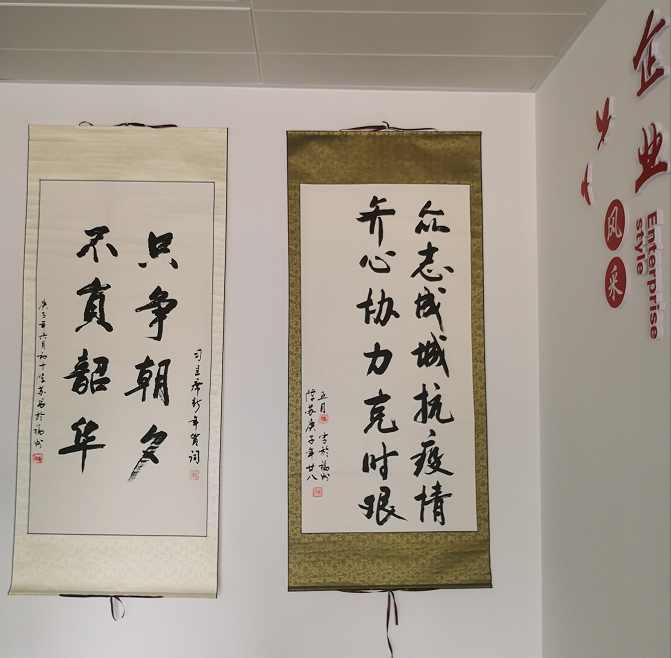 只争朝夕
不負韶华
习主席新年贺词
庚子年六月初十陈苏书於福州
众志成城抗疫情
齐心协力克时艰
正月
书於福州
陈苏庚子年廿八
企业
风采
Enterprise
style